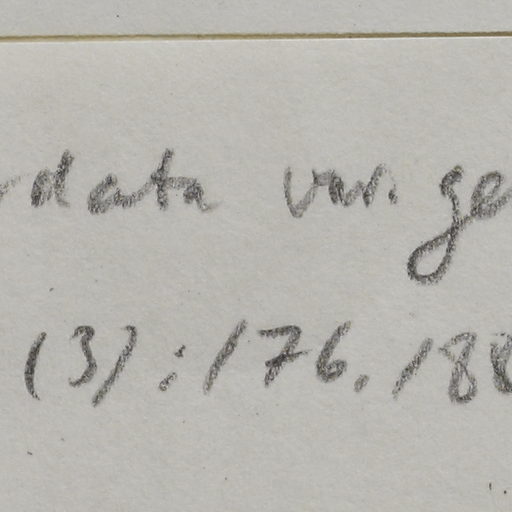 rdata var. ge
(3):176. 188